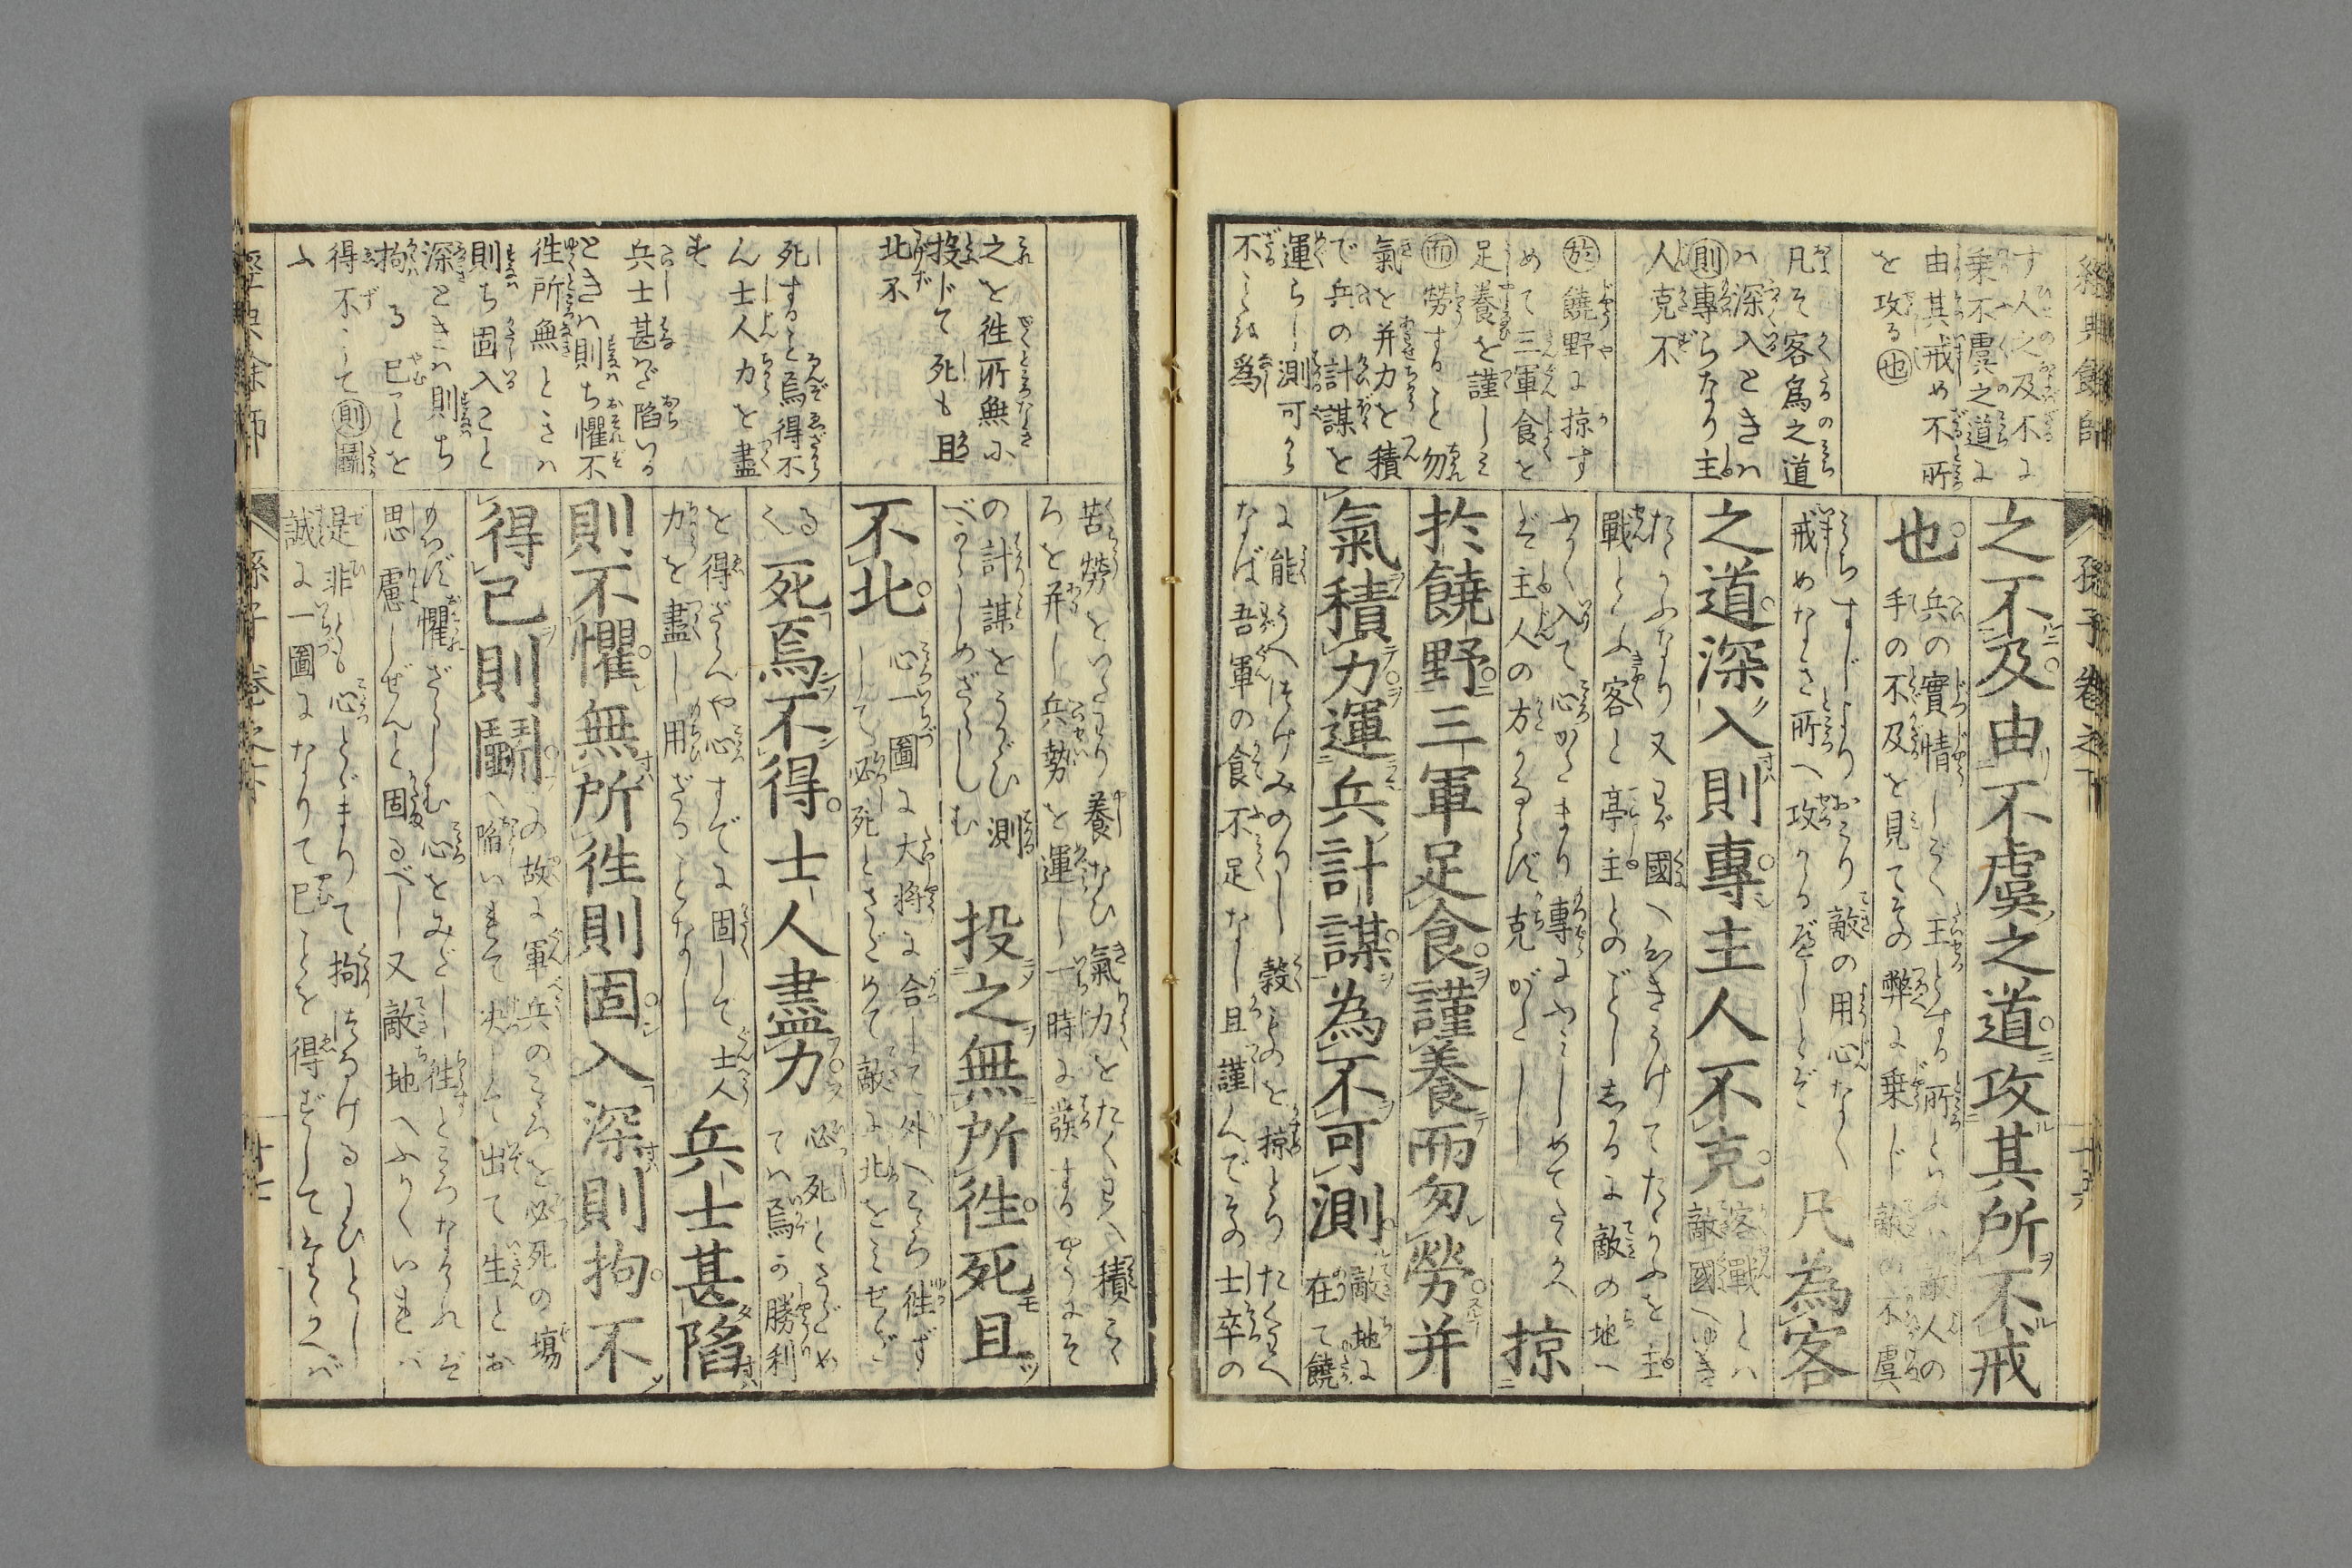 經典餘師
孫子卷之下
す人之及不に
乗不虞之道に
由其戒め不所
を攻る也
凡そ客爲之道
ハ深入ときハ
則專らなり主
人克不
於饒野に掠す
めて三軍食を
足養を謹しミ
而勞すること勿
氣を并力を積
で兵の計謀を
運らし測可から
不之を爲
之不及由不虞之道攻其所不戒
也
兵の實情しごく主とする所といふハ敵人の
手の不及を見てその弊に乗じ敵の不虞
みちすじよりおこり敵の用心なく
戒めなき所へ攻かるべしとぞ
凡為客
之道深入則專主人不克
客戰とハ
敵國へゆき
たゝかふなり又わが國へひきうけてたゝかふを主
戰といふ客と亭主とのごとししかるに敵の地へ
ふかく入て心かたまり專にふミしめてたゝかへ
ぞ主人の方かならず克がたし
掠
於饒野三軍足食謹養而勿勞并
氣積力運兵計謀為不可測
敵地に
在て饒
に能うへつけみのりし穀ものを掠とりたくハへ
なば吾軍の食不足なし且謹んでその士卒の
之を徃所無に
投じて死も且
北不
死すること焉得不
ん士人力を盡
す
兵士甚だ陷いる
ときハ則ち懼不
徃所無ときハ
則ち固入こと
深ときハ則ち
拘る已ことを
得不して則鬭
ふ
苦勞をいたはり養なひ氣力をたくはへ積こゝ
ろを并し兵勢を運し一時に發するやうにそ
の計謀をうかゞひ測
べからしめざらしむ
投之無所徃死且
不北
心一圖に大将に合して外へこゝろ徃ず
して必死とさだめて敵に北をミせざ
る
死焉不得士人盡力
必死とさだめ
てハ焉ぞ勝利
を得ざらんや心すでに固して士人
力を盡し用ざることなし
兵士甚陷
則不懼無所徃則固入深則拘不
得已則鬭
の故に軍兵のこゝろを必死の塲
へ陷いれて决して出て生とお
もはず懼ざらしむ心をみだし徃ところなけれど
思慮しぜんと固るべし又敵地へふかくいれバ
是非とも心とゞまりて拘はるけるまひとし
誠に一圖になりて已ことを得ずしてたゝかへバ